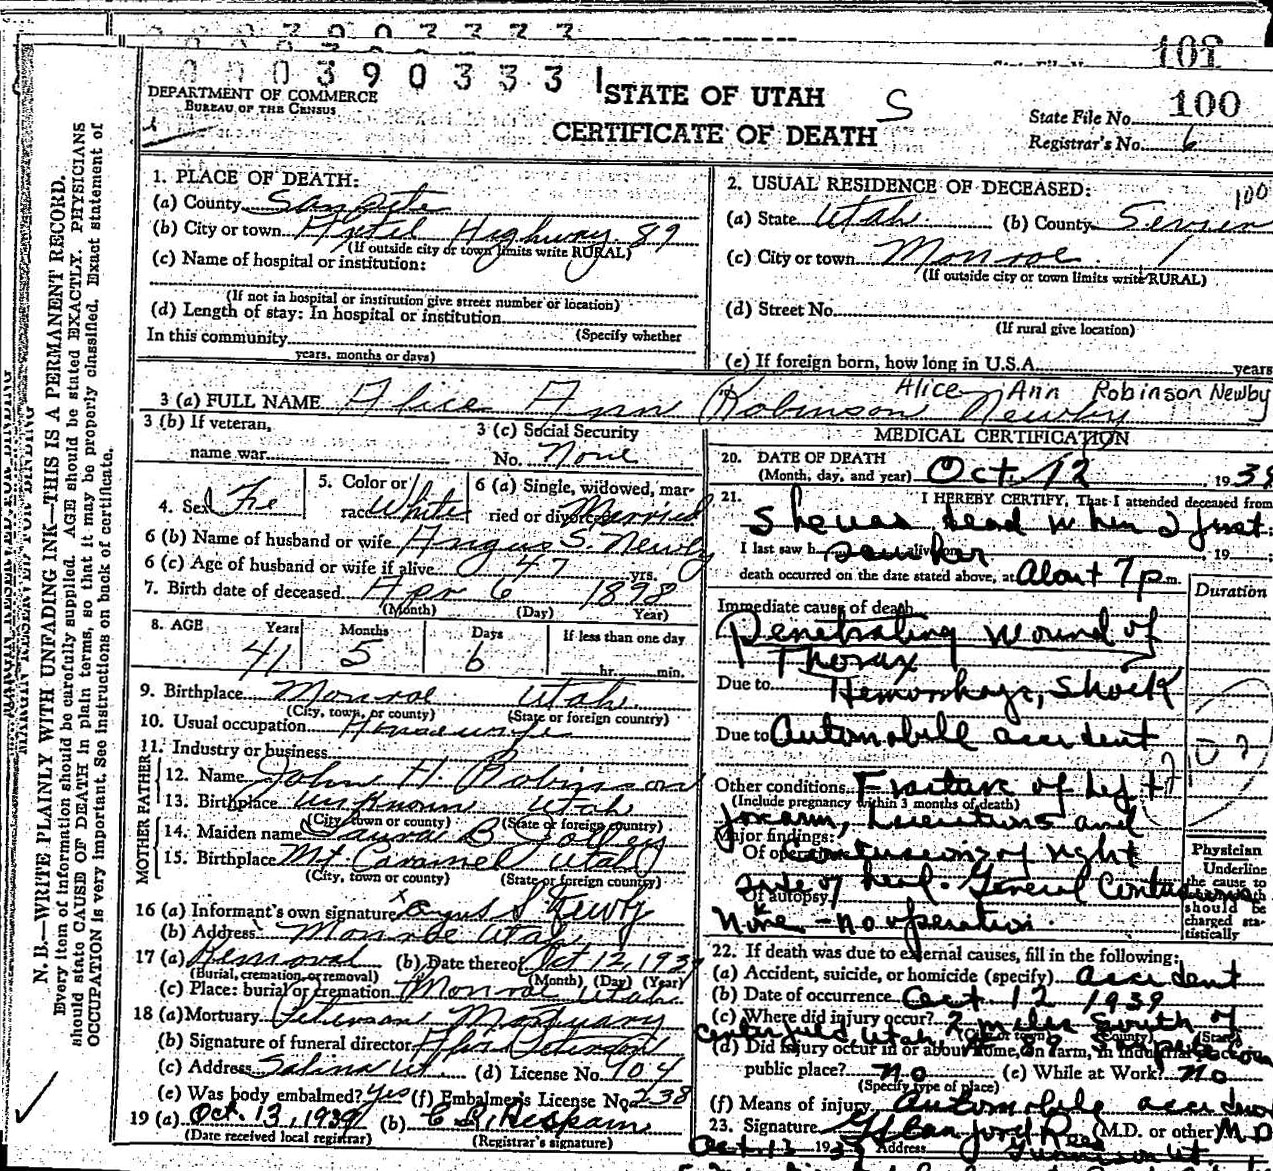 0003903331
DEPARTMENT OF COMMERCE
BUREAU OF THE CENSUS
STATE OF UTAH
CERTIFICATE OF DEATH
S
101
State File No. 100
Registrar's No. 6
N. B.—WRITE PLAINLY WITH UNFADING INK—THIS IS A PERMANENT RECORD.
Every item of information should be carefully supplied. AGE should be stated EXACTLY. PHYSICIANS
should state CAUSE OF DEATH in plain terms, so that it may be properly classified. Exact statement of
OCCUPATION is very important. See instructions on back of certificate.
1. PLACE OF DEATH:
(a) County Sanpete
(b) City or town Hotel Highway 89
(If outside city or town limits write RURAL)
(c) Name of hospital or institution:
(If not in hospital or institution give street number or location)
(d) Length of stay: In hospital or institution
(Specify whether
In this community
years, months or days)
2. USUAL RESIDENCE OF DECEASED: 100
(a) State Utah (b) County Sevier
(c) City or town Monroe
(If outside city or town limits write RURAL)
(d) Street No.
(If rural give location)
(e) If foreign born, how long in U.S.A. years
3 (a) FULL NAME Alice Ann Robinson Newby
Alice Ann Robinson Newby
3 (b) If veteran,
name war
3 (c) Social Security
No. None
4. Sex Fe
5. Color or
race White
6 (a) Single, widowed, mar-
ried or divorced Married
6 (b) Name of husband or wife Angus S. Newby
6 (c) Age of husband or wife if alive 47 yrs.
7. Birth date of deceased Apr 6 1898
(Month) (Day) Year)
8. AGE Years Months Days If less than one day
41 5 6 hr. min.
9. Birthplace Monroe Utah
(City, town, or county) (State or foreign country)
10. Usual occupation Housewife
11. Industry or business
FATHER
12. Name John H. Robinson
13. Birthplace Unknown Utah
(City town or county) (State or foreign country)
MOTHER
14. Maiden name Laura B
15. Birthplace Mt Carmel Utah
(City, town or county) (State or foreign country)
16 (a) Informant's own signature x Angus S Newby
(b) Address Monroe Utah
17 (a) Removal (b) Date thereof Oct 12, 1939
(Burial, cremation, or removal) (Month) (Day) (Year)
(c) Place: burial or cremation Monroe Utah
18 (a) Mortuary Peterson Mortuary
(b) Signature of funeral director Peterson
(c) Address Salina Ut. (d) License No. 704
(e) Was body embalmed? Yes (f) Embalmer's License No. 238
19 (a) Oct. 13, 1939 (b)
(Date received local registrar) (Registrar's signature)
MEDICAL CERTIFICATION
20. DATE OF DEATH
(Month, day, and year) Oct. 12, 193
21. I HEREBY CERTIFY, That I attended deceased from
She was dead when I first
I last saw h alive on 19
saw her
death occurred on the date stated above, at About 7 p m.
Duration
Immediate cause of death
Penetrating wound of
Thorax
Due to Hemorrhage, Shock
Due to Automobile accident
Other conditions Fracture of leg +
(Include pregnancy within 3 months of death)
forearm, Lacerations and
Major findings:
Of operations Contusions of right
side of head. General Contusions
Of autopsy
None - no operation.
Physician
Underline
the cause to
which death
should be
charged sta-
tistically
22. If death was due to external causes, fill in the following:
(a) Accident, suicide, or homicide (specify) accident
(b) Date of occurrence Oct 12 1939
(c) Where did injury occur? 2 miles South of
Centerfield, Utah
(City) (County) (State)
(d) Did injury occur in or about home, on farm, in industrial place, in
public place? no (e) While at Work? no
(Specify type of place)
(f) Means of injury Automobile accident
23. Signature Rees (M.D. or other) M D
Oct 13 1939 Address Gunnison Ut.